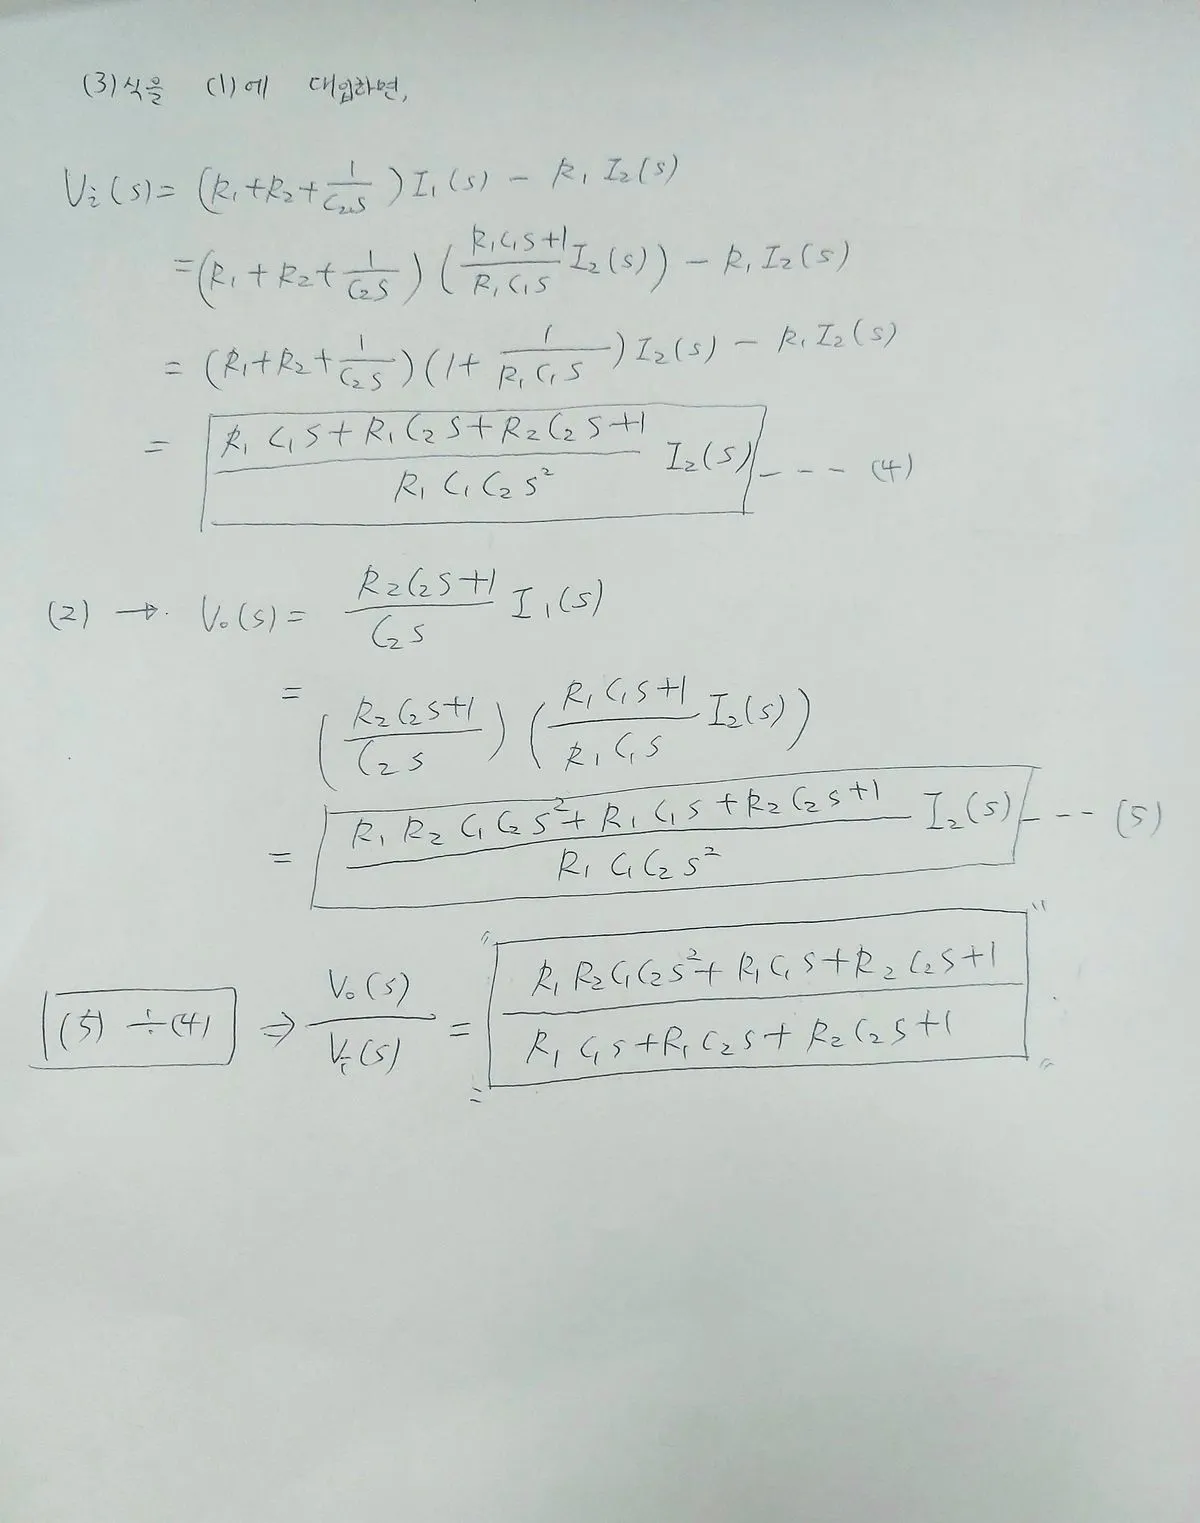 (3)식을 (1)에 대입하면,
Vi(s) = (R₁+R₂+1/(C₂s)) I₁(s) − R₁ I₂(s)
= (R₁+R₂+1/(C₂s)) ((R₁C₁s+1)/(R₁C₁s) I₂(s)) − R₁ I₂(s)
= (R₁+R₂+1/(C₂s)) (1+ 1/(R₁C₁s)) I₂(s) − R₁ I₂(s)
= (R₁C₁s+R₁C₂s+R₂C₂s+1)/(R₁C₁C₂s²) I₂(s) - - - - (4)
(2) → V₀(s) = (R₂C₂s+1)/(C₂s) I₁(s)
= ((R₂C₂s+1)/(C₂s)) ((R₁C₁s+1)/(R₁C₁s) I₂(s))
= (R₁R₂C₁C₂s²+R₁C₁s+R₂C₂s+1)/(R₁C₁C₂s²) I₂(s) - - - (5)
(5) ÷ (4) ⇒ V₀(s)/Vi(s) = (R₁R₂C₁C₂s²+R₁C₁s+R₂C₂s+1)/(R₁C₁s+R₁C₂s+R₂C₂s+1)